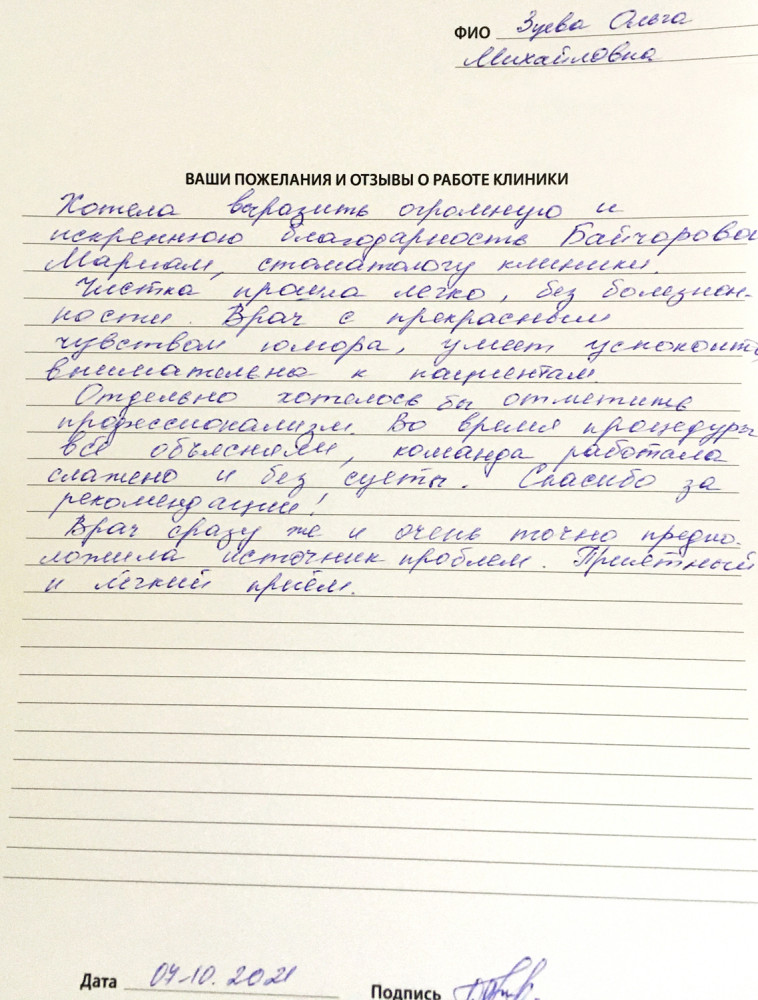 ФИО Зуева Ольга
Михайловна
ВАШИ ПОЖЕЛАНИЯ И ОТЗЫВЫ О РАБОТЕ КЛИНИКИ
Хотела выразить огромную и
искреннюю благодарность Байчоровой
Мариам, стоматологу клиники.
Чистка прошла легко, без болезнен-
ности. Врач с прекрасным
чувством юмора, умеет успокоить,
внимательна к пациентам.
Отдельно хотелось бы отметить
профессионализм. Во время процедуры
всё объясняли, команда работала
слажено и без суеты. Спасибо за
рекомендации!
Врач сразу же и очень точно предпо-
ложила источник проблем. Приятный
и лёгкий приём.
Дата 07.10.2021 Подпись